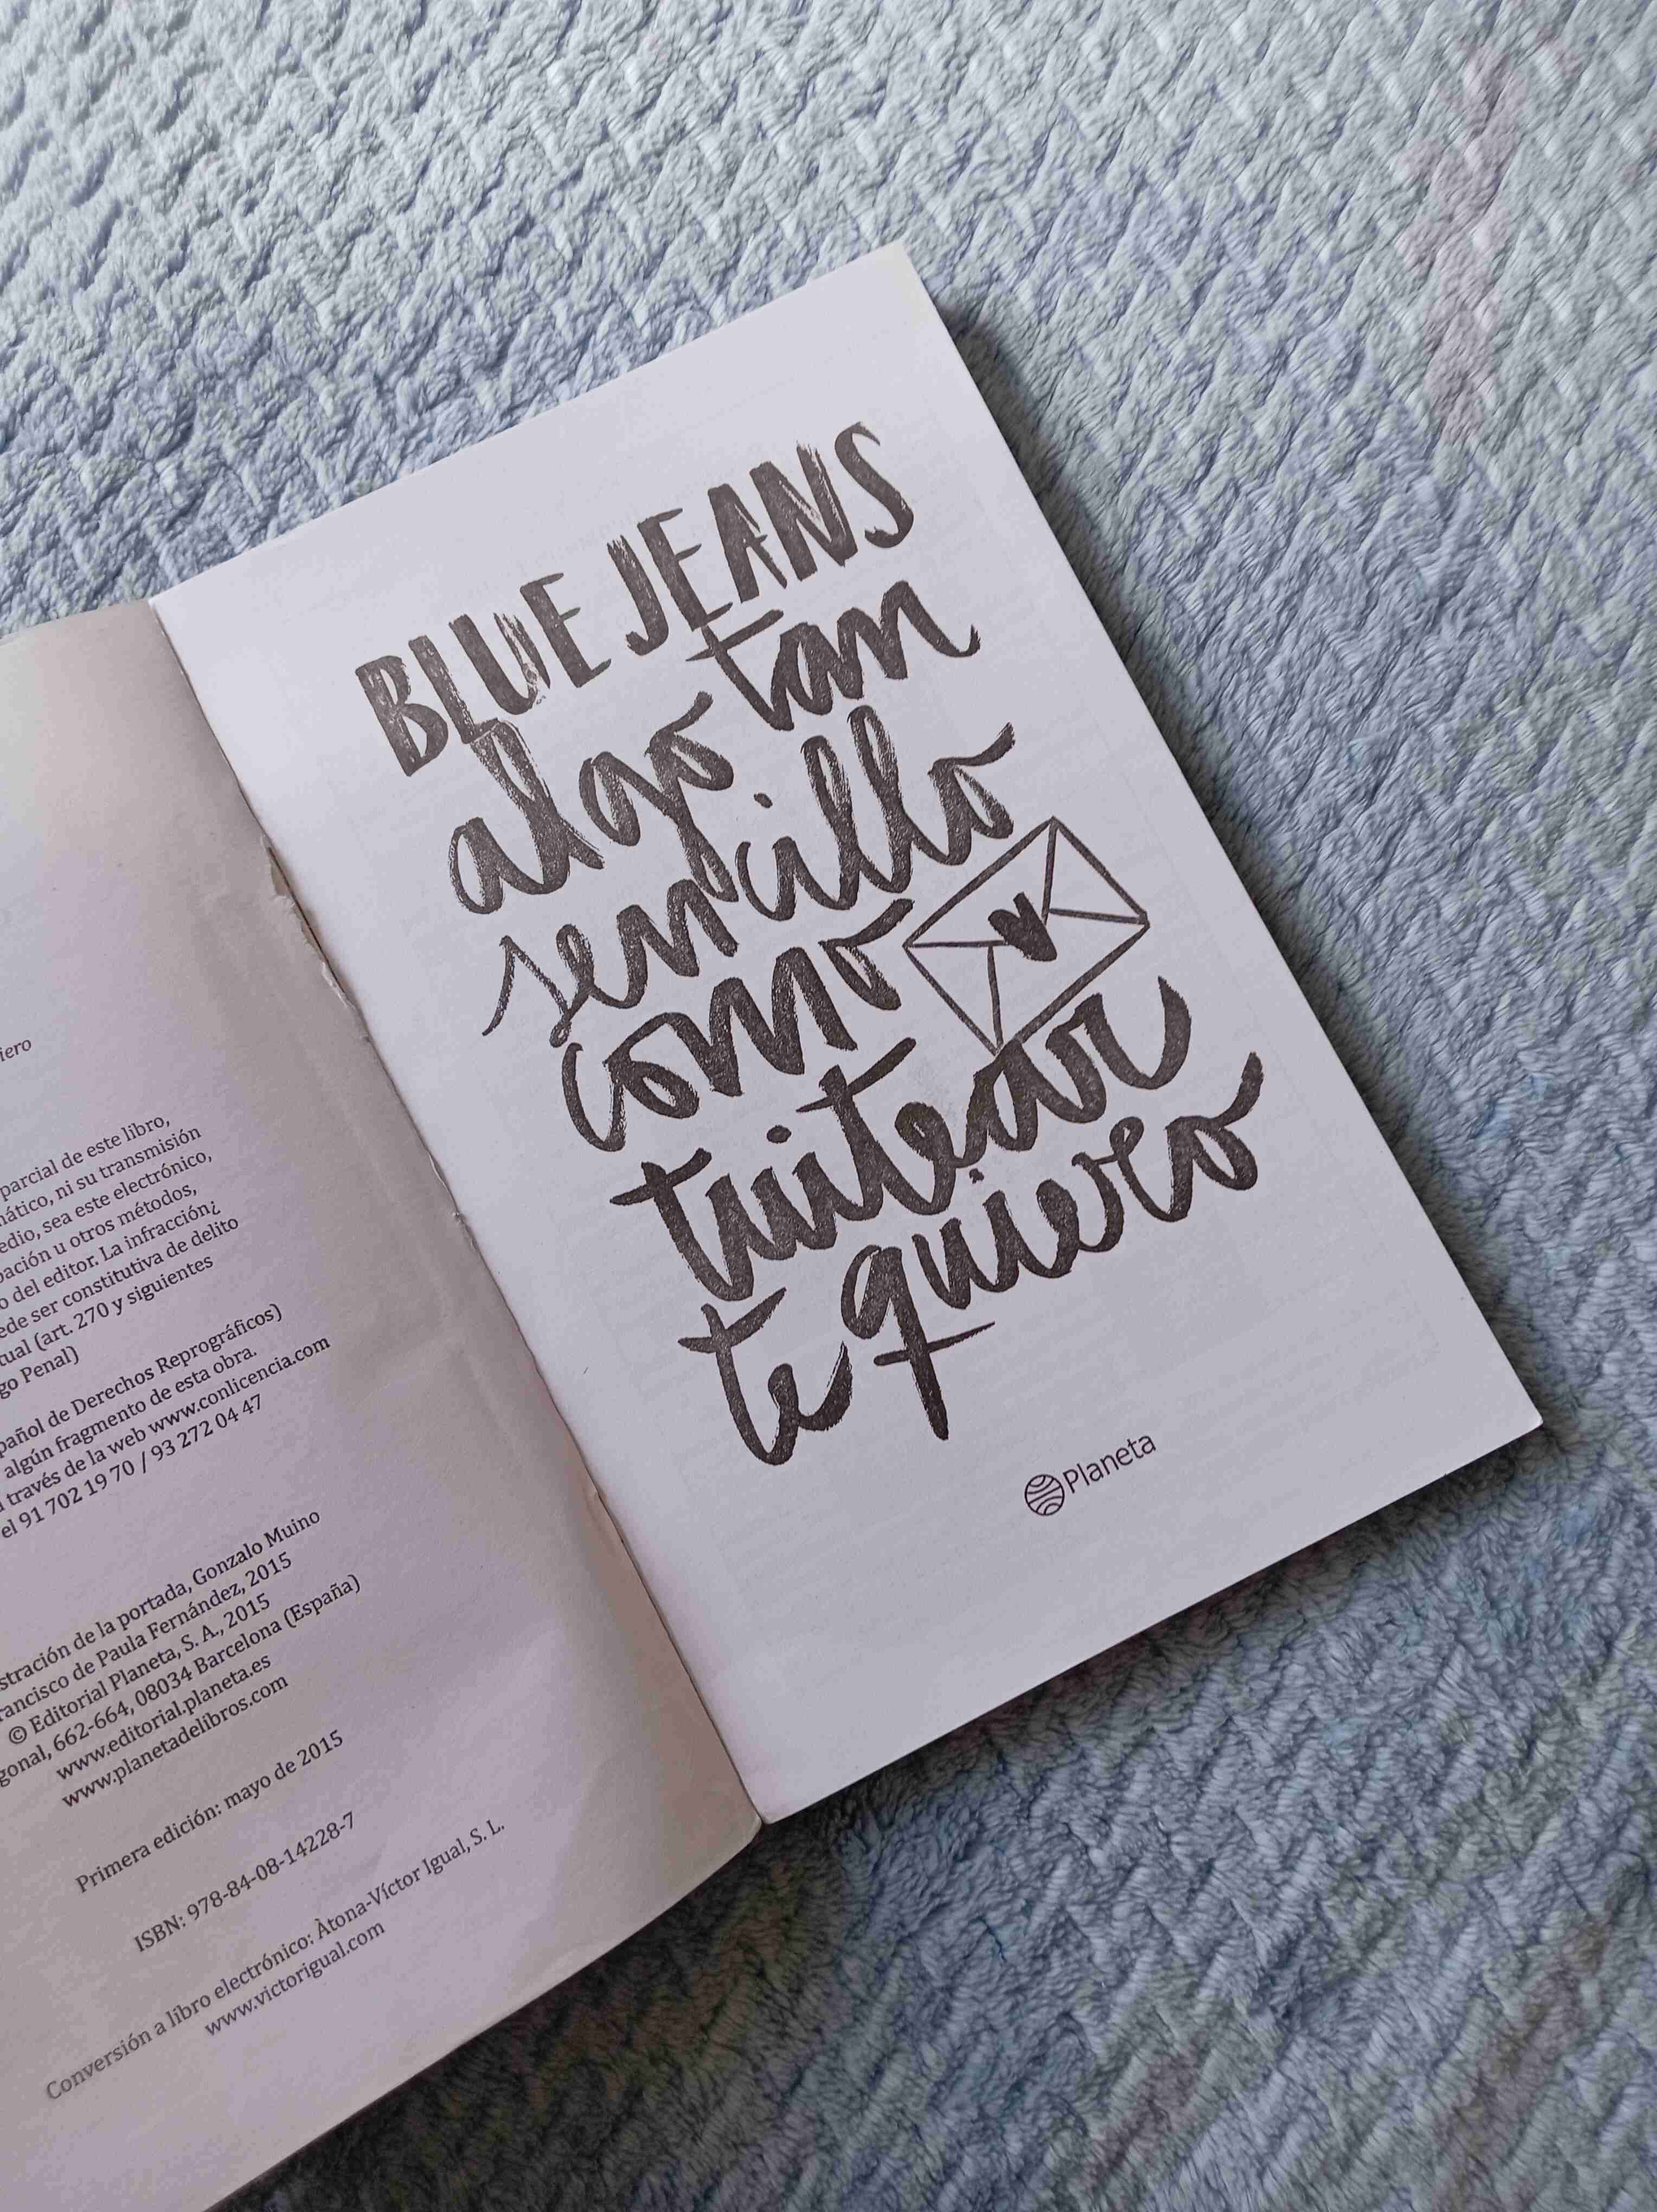 parcial de este libro,
ni su transmisión
sea este electrónico,
u otros métodos,
del editor. La infracción¿
ser constitutiva de delito
(art. 270 y siguientes
Penal)
de Derechos Reprográficos)
algún fragmento de esta obra.
través de la web www.conlicencia.com
el 91 702 19 70 / 93 272 04 47
de la portada, Gonzalo Muino
de Paula Fernández, 2015
© Editorial Planeta, S. A., 2015
662-664, 08034 Barcelona (España)
www.editorial.planeta.es
www.planetadelibros.com
Primera edición: mayo de 2015
ISBN: 978-84-08-14228-7
Conversión a libro electrónico: Àtona-Víctor Igual, S. L.
www.victorigual.com
BLUE JEANS
algo tan
sencillo
como
tuitear
te quiero
Planeta